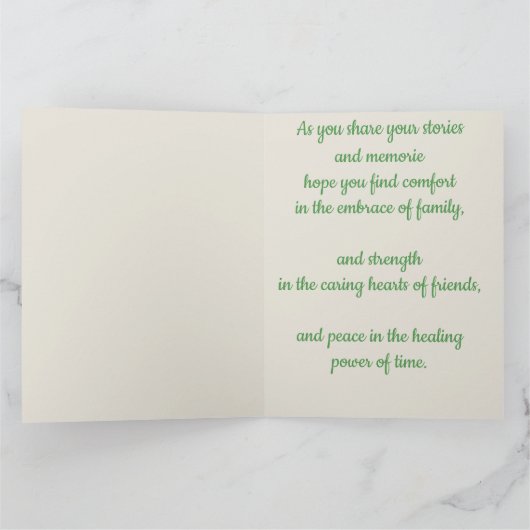 As you share your stories
and memorie
hope you find comfort
in the embrace of family,
and strength
in the caring hearts of friends,
and peace in the healing
power of time.